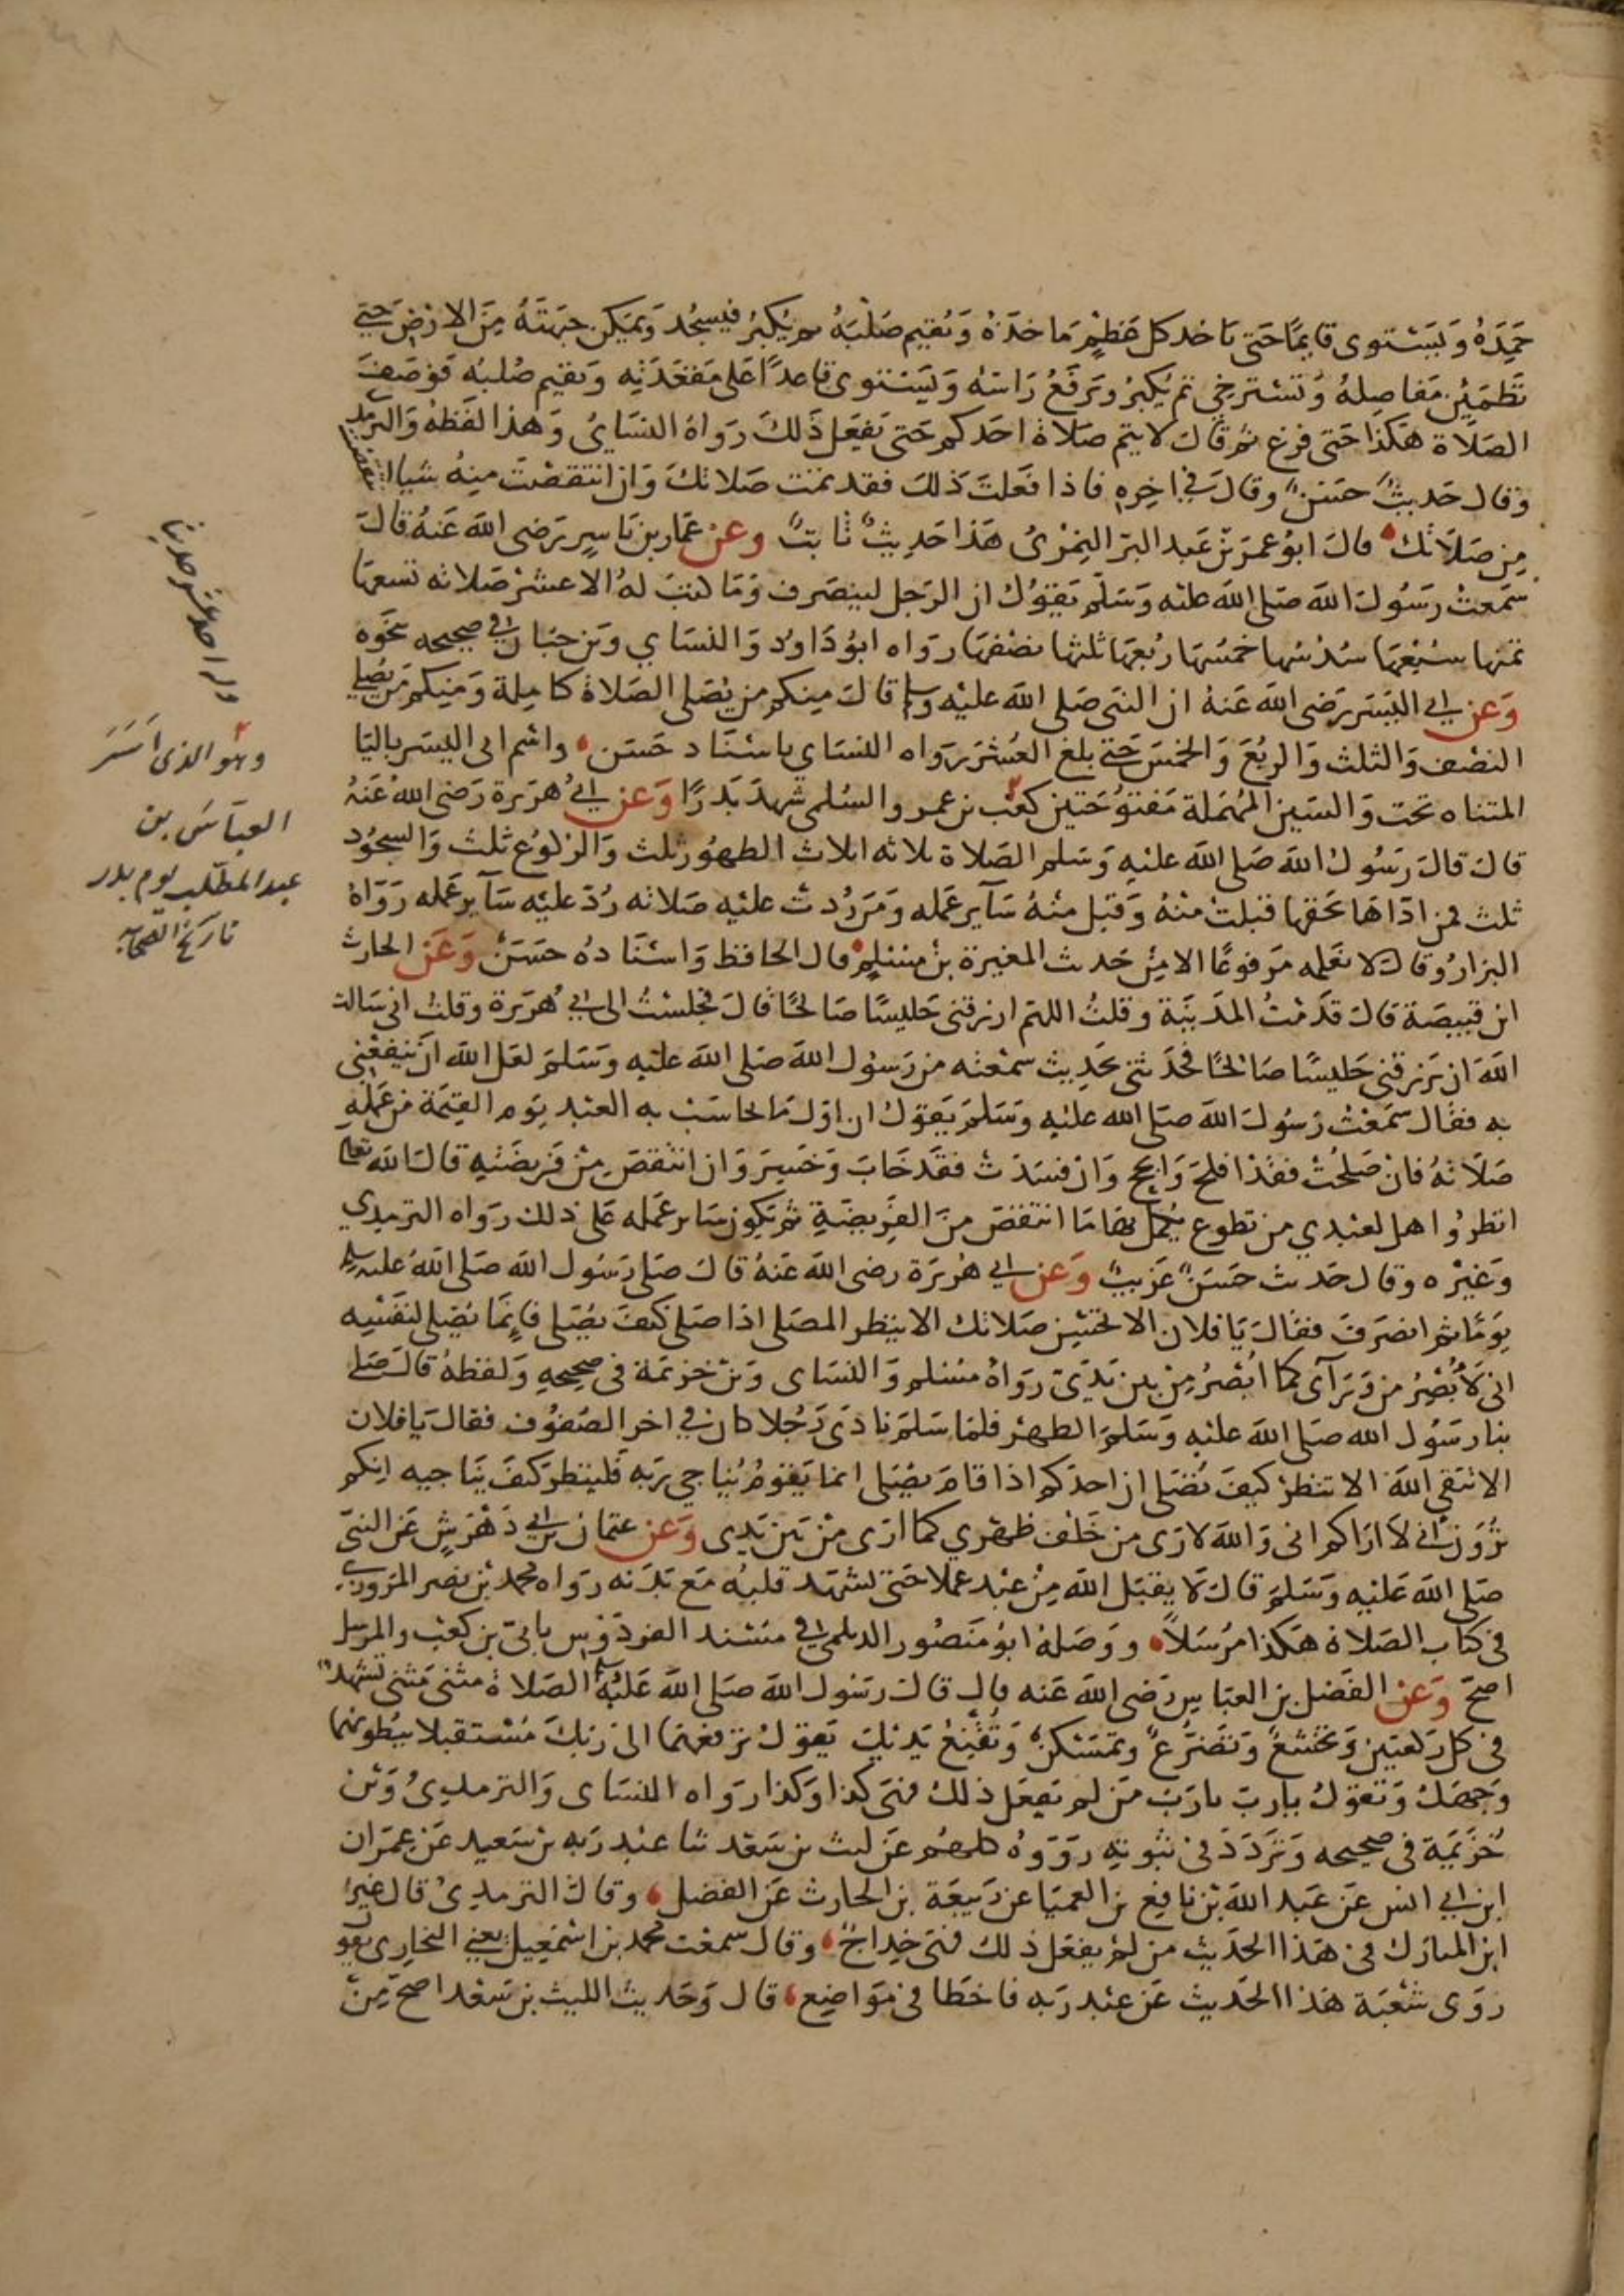 حمده ويستوى قايمًا حتى ياخد كل عظم ماخذه ويقيم صلبه ثم يكبر فيسجد ويمكن جبهته من الارض حتى
تطمين مفاصله وتسترخى ثم يكبر ويرفع راسه ويستوى قاعدًا على مقعدته ويقيم صلبه فوصف
الصلاة هكذا حتى فرغ ثم قال لا يتم صلاة احدكم حتى يفعل ذلك رواه النساى وهذا لفظه والترمدى
وقال حديث حسن وقال فى اخره فاذا فعلت ذلك فقد تمت صلاتك وان انتقصت منه شيا انتقصت
من صلاتك قال ابو عمر بن عبد البر النمرى هذا حديث ثابت وعن عمار بن ياسر رضى الله عنه قال
سمعت رسول الله صلى الله عليه وسلم يقول ان الرجل لينصرف وما كتب له الا عشر صلاته تسعها
ثمنها سبعها سدسها خمسها ربعها ثلثها نصفها رواه ابو داود والنساي وبن حبان فى صحيحه نحوه
وعن ابى اليسر رضى الله عنه ان النبى صلى الله عليه وسلم قال منكم من يصلى الصلاة كاملة ومنكم من يصلى
النصف والثلث والربع والخمس حتى بلغ العشر رواه النساي باسناد حسن واسم ابى اليسر باليا
المثناه تحت والسين المهملة مفتوحتين كعب بن عمرو السلمى شهد بدرًا وعن ابى هريرة رضى الله عنه
قال قال رسول الله صلى الله عليه وسلم الصلاة ثلاثه اثلاث الطهور ثلث والركوع ثلث والسجود
ثلث فمن اداها بحقها قبلت منه وقبل منه سآير عمله ومن ردت عليه صلاته رد عليه سآير عمله رواه
البزار وقال لا نعلمه مرفوعًا الا من حديث المغيرة بن مسلم قال الحافظ واسناده حسن وعن الحارث
ابن قبيصة قال قدمت المدينة وقلت اللهم ارزقنى جليسًا صالحًا قال فجلست الى ابى هريرة وقلت انى سالت
الله ان يرزقنى جليسًا صالحًا فحدثنى بحديث سمعته من رسول الله صلى الله عليه وسلم لعل الله ان ينفعنى
به فقال سمعت رسول الله صلى الله عليه وسلم يقول ان اول ما يحاسب به العبد يوم القيمة من عمله
صلاته فان صلحت فقد افلح وانجح وان فسدت فقد خاب وخسر وان انتقص من فريضته قال الله تعالى
انظروا هل لعبدي من تطوع يكمل بها ما انتقص من الفريضة ثم يكون ساير عمله على ذلك رواه الترمدي
وغيره وقال حديث حسن غريب وعن ابى هريرة رضى الله عنه قال صلى رسول الله صلى الله عليه وسلم
يومًا ثم انصرف فقال يا فلان الا تحسن صلاتك الا ينظر المصلى اذا صلى كيف يصلى فانما يصلى لنفسه
انى لأبصر من ورآى كما ابصر من بين يدى رواه مسلم والنساى وبن خزيمة فى صحيحه ولفظه قال صلى
بنا رسول الله صلى الله عليه وسلم الظهر فلما سلم نادى رجلا كان فى اخر الصفوف فقال يا فلان
الا تتقى الله الا تنظر كيف تصلى ان احدكم اذا قام يصلى انما يقوم يناجي ربه فلينظر كيف يناجيه انكم
ترون انى لا اراكم انى والله لارى من خلف ظهري كما ارى من بين يدى وعن عثمان بن ابى دهرش عن النبى
صلى الله عليه وسلم قال لا يقبل الله من عبد عملا حتى يشهد قلبه مع بدنه رواه محمد بن نصر المروزى
فى كتاب الصلاة هكذا مرسلاً ووصله ابو منصور الديلمى فى مسند الفردوس بابى بن كعب والمرسل
اصح وعن الفضل بن العباس رضى الله عنه قال قال رسول الله صلى الله عليه وسلم الصلاة مثنى مثنى تشهد
فى كل ركعتين وتخشع وتضرع وتمسكن وتقنع يديك يقول ترفعهما الى ربك مستقبلا ببطونهما
وجهك وتقول يارب يارب من لم يفعل ذلك فهى كذا وكذا رواه النساى والترمدى وبن
خزيمة فى صحيحه وتردد فى ثبوته رووه كلهم عن ليث بن سعد ثنا عبد ربه بن سعيد عن عمران
ابن ابى انس عن عبد الله بن نافع بن العميا عن ربيعة بن الحارث عن الفضل وقال الترمدى قال غير
ابن المبارك فى هذا الحديث من لم يفعل ذلك فهى خداج وقال سمعت محمد بن اسمعيل يعنى البخارى يقو
روى شعبة هذا الحديث عن عبد ربه فاخطا فى مواضع قال وحديث الليث بن سعد اصح من
احد عشر حديثا
وهو الذى اسر
العباس بن
عبد المطلب يوم بدر
تاريخ الصحابه